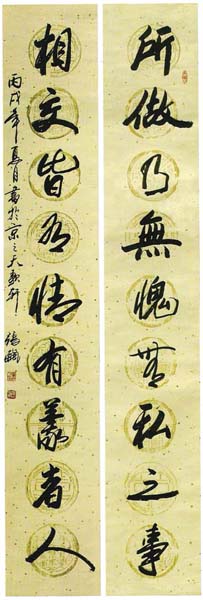 所做乃無愧無私之事
相交皆有情有義者人
丙戌年夏月書於京之天軒